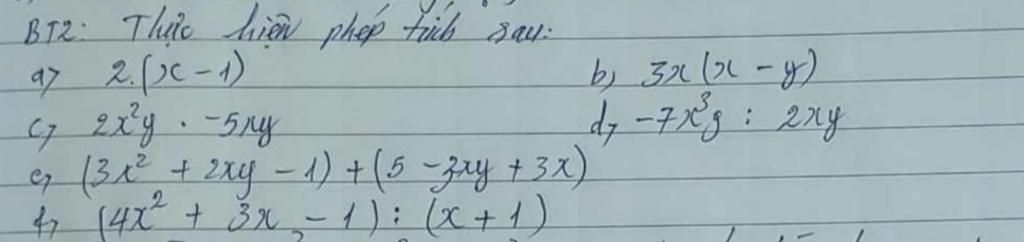 BT2: Thực hiện phép tính sau:
a) 2.(x - 1) b) 3x(x - y)
c) 2x²y . -5xy d) -7x³y : 2xy
e) (3x² + 2xy - 1) + (5 - 3xy + 3x)
f) (4x² + 3x - 1) : (x + 1)